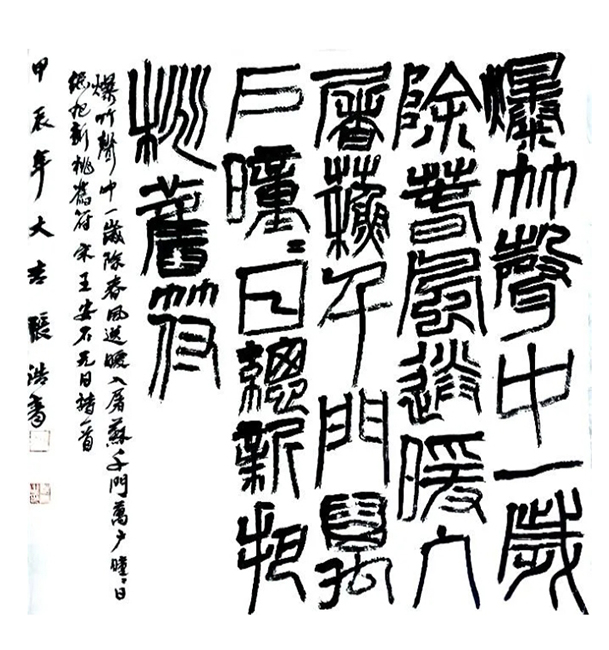 爆竹聲中一歲
除春風送暖入
屠蘇千門萬
戶曈〻日總新把
桃舊符
爆竹聲中一歲除春風送暖入屠蘇千門萬戶曈〻日
總把新桃舊符宋王安石元日詩一首
甲辰年大吉張浩書